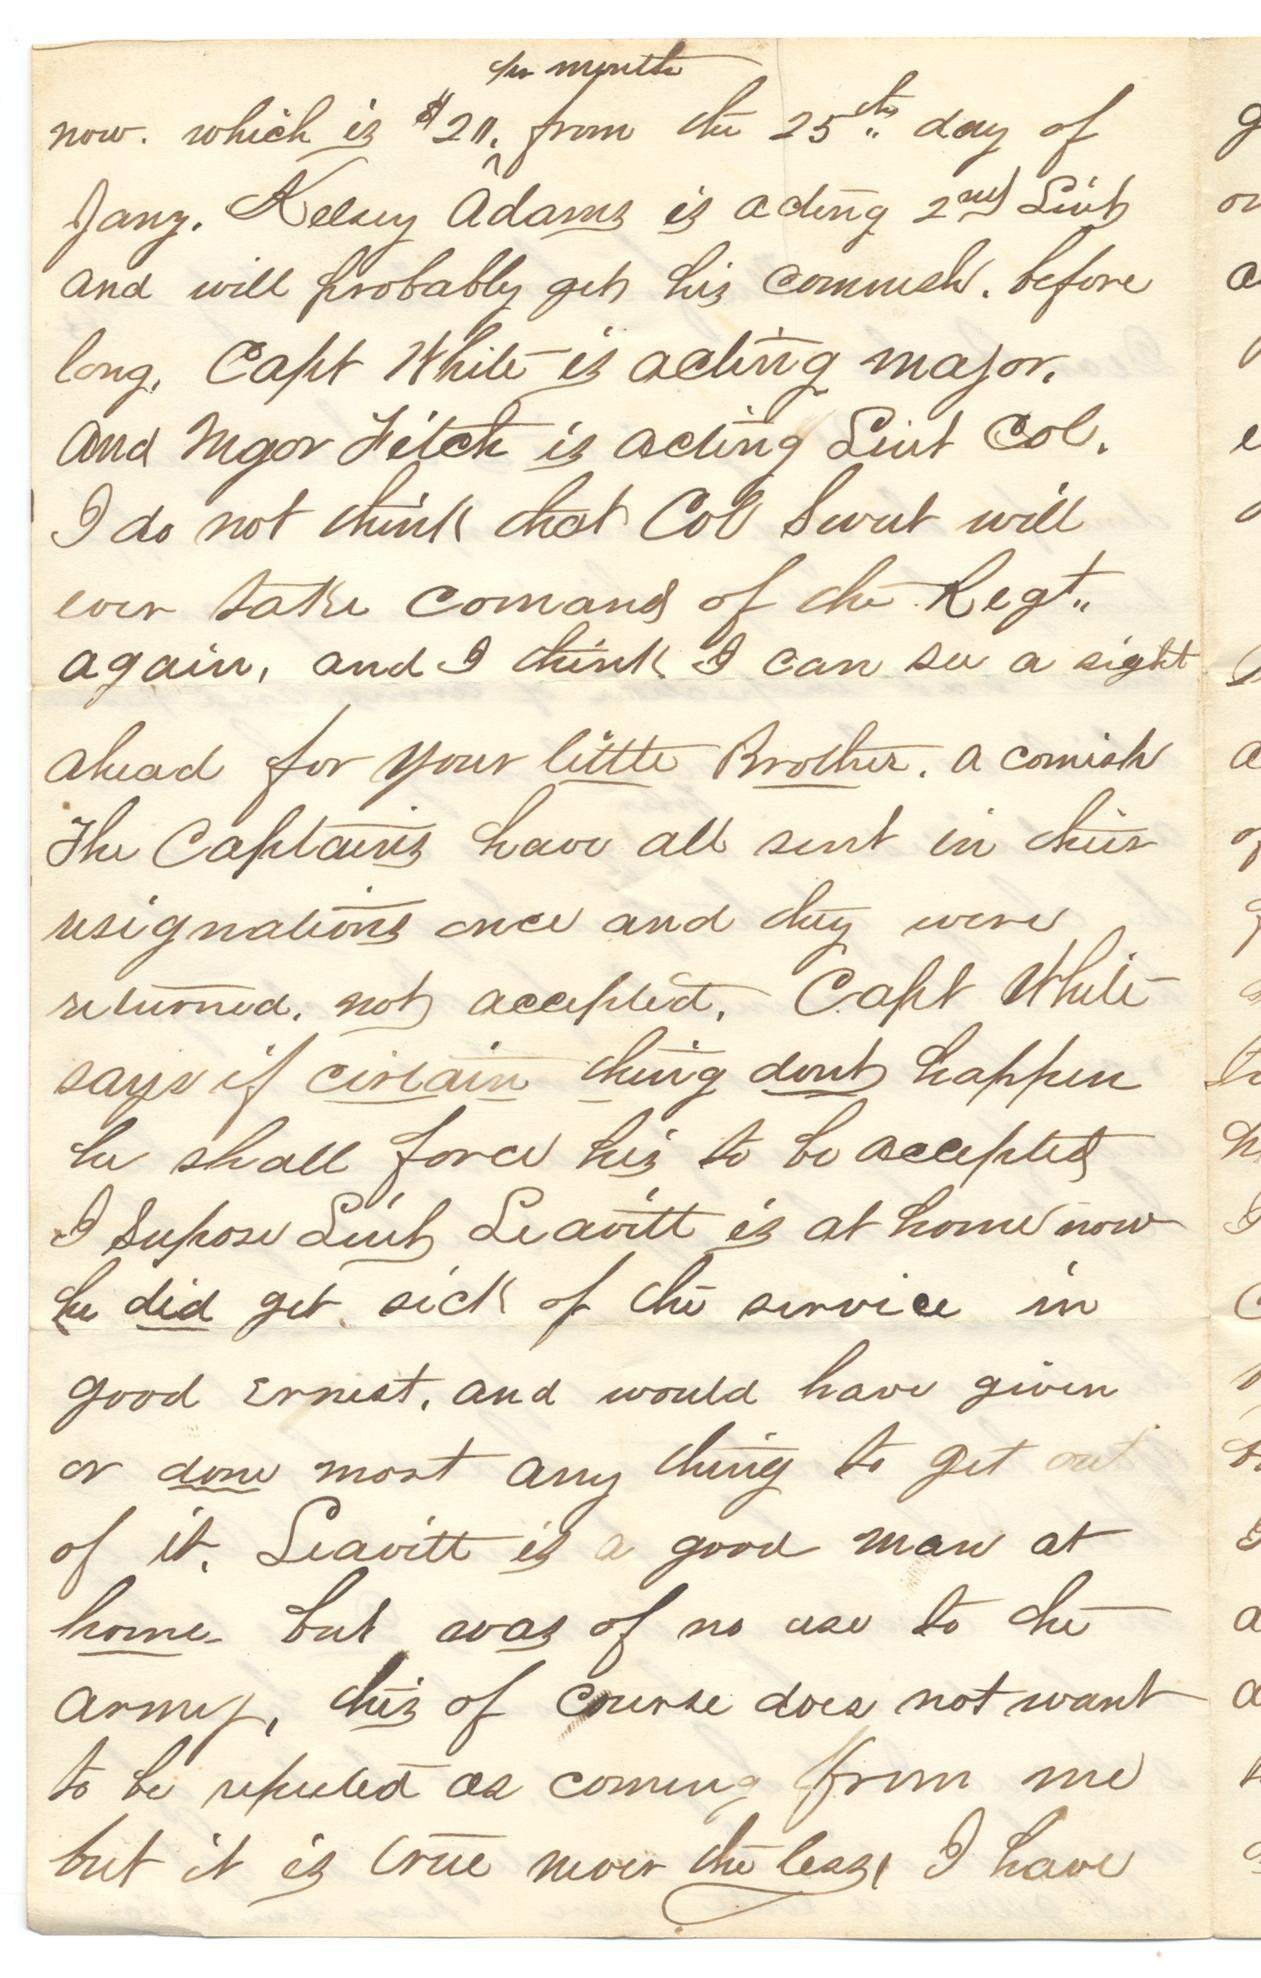 per month
now. which is $20. from the 25th day of
Jany. Kelsey Adams is acting 2nd Liut
and will probably get his commish. before
long, Capt White is acting major.
and Magor Fitch is acting Liut Col.
I do not think that Col Swut will
ever take comand of the Regt..
again, and I think I can see a sight
ahead for your little Brother. a comish
The Captains have all sent in thier
resignations once and they were
returned. not accepted. Capt White
says if certain thing dont happen
he shall force his to be accepted
I Supose Liut Leavitt is at home now
he did get sick of the service in
good Ernest, and would have given
or done most any thing to get out
of it. Leavitt is a good man at
home but was of no use to the
army, this of course does not want
to be repeeted as coming from me
but it is true never the less, I have